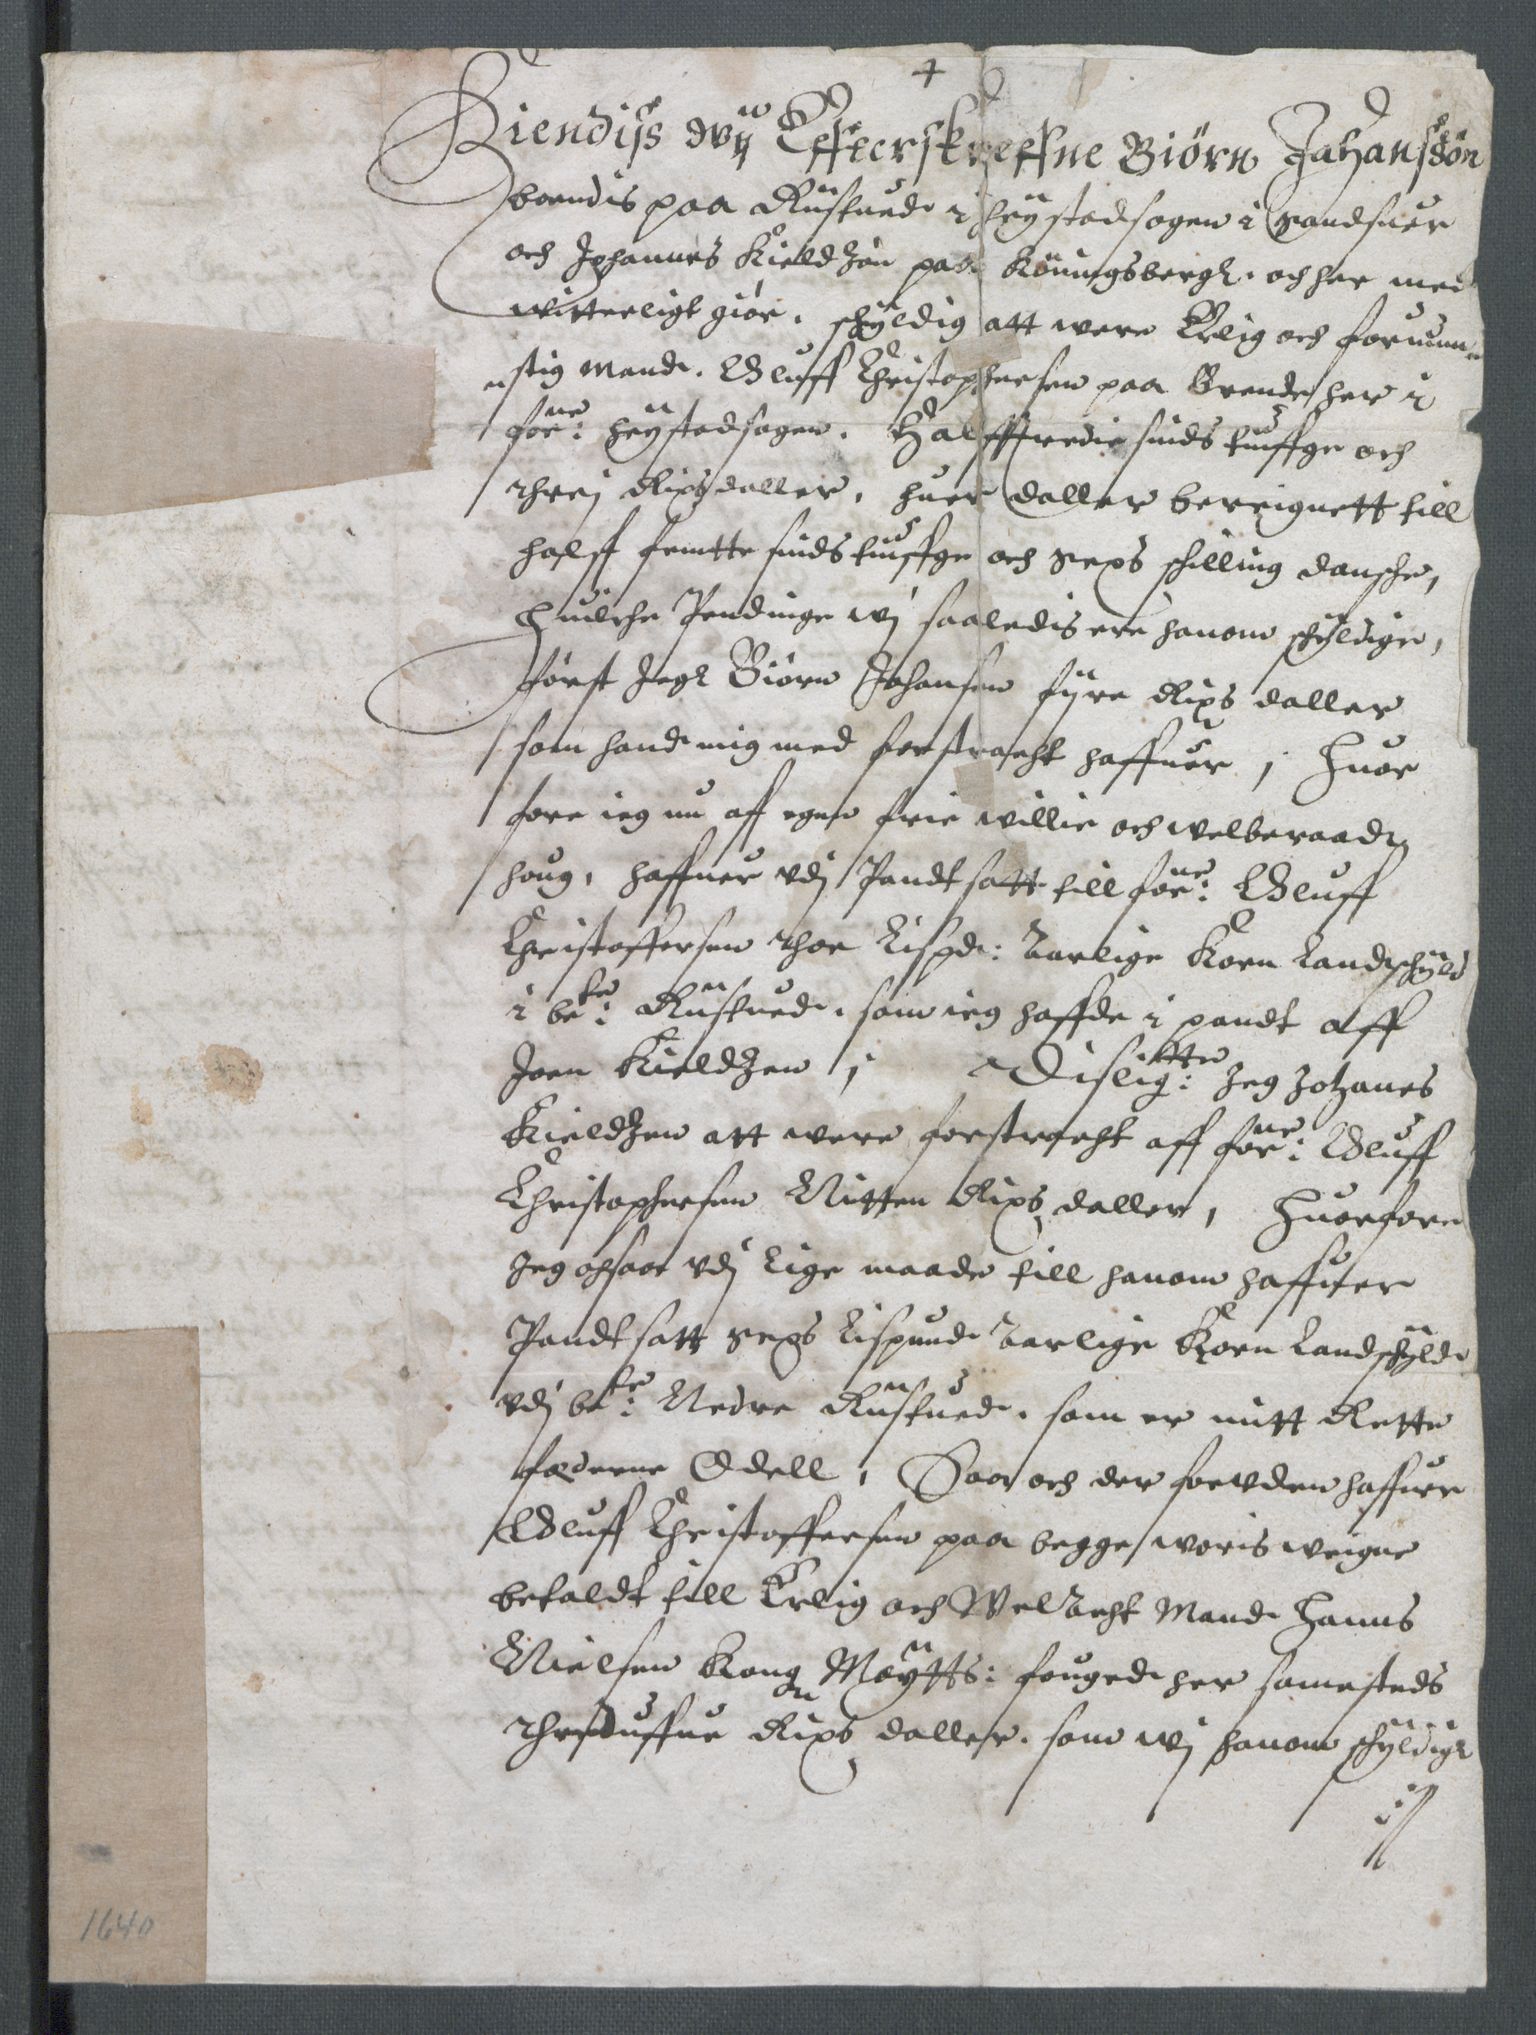 +
Kiendiss wij Effterskreffne Biörn Johanssön
boendis paa Rustued i Heystadsogen i Sandsuer
och Johannes Kieldzön paa Konningsbergh. och her med
witterligt giör. schyldig att were Erlig och fornum-
stig Mand. Oluff Christophersen paa Brende her i
forne: Heystadsogen. Halfftredie sinds tuffge och
threj Rixs daller, huer daller bereignett till
halff femtte sinds tuffge och sexs schilling dansche,
Huilche Pendinge wj saaledis ere hanom schyldige,
først Jegh Biörn Johansen fyre Rixs daller
som hand mig med forstracht haffuer, Huor
fore ieg nu aff egen frie willie och welberaad
houg, haffuer vdj Pandt satt till forne: Oluff
Christoffersen thoe Lispd: Aarlige Korn Landschyld
i bete: Rustued. som ieg haffde i pandt aff
Joen Kieldzen, Disligtte: Jeg Johanes
Kieldzen att were forstracht aff forne: Oluff
Christophersen Nitten Rixs daller, Huorfore
Jeg ochsaa vdj lige maade till hanom haffuer
Pandt satt sexs Lispund Aarlige Korn Landschyld
vdj bete: Nedre Rustued. som er mitt Rette
fæderne Odell, Saa och der foruden haffuer
Oluff Christoffersen paa begge woris weigne
betaldt till Erlig och Welacht Mand Hanns
Nielsen Kong Maytts: fouged her samesteds
threduffue Rixs daller. som wj hanom schyldigh
1640